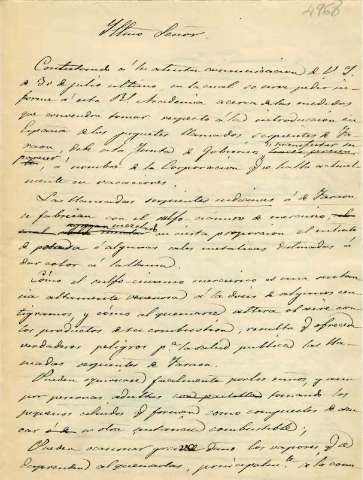 4968
Iltmo Señor.
Contestando á la atenta comunicacion de V. S.
de 30 de julio ultimo, en la cual se sirve pedir in-
forme á esta Rl Academia acerca de las medidas
que convendria tomar respecto á la introduccion en
España de los juguetes llamados serpientes de Fa-
raon, debe esta Junta de Gobierno manifestar en
nombre de la Corporacion q se halla actual-
mente en vacaciones.
Las llamadas serpientes ó de Faraon
se fabrican con el sulfo-cianuro de mercurio,
mezclado en cierta proporcion el nitrato
de potasa ó algunas sales metalicas destinadas á
dar color á la llama.
Como el sulfo-cianuro mercurico es una sustan-
cia altamente venenosa á la dosis de algunos cen-
tigramos, y como al quemarse altera el aire con
los productos de su combustion, resulta q ofrecen
verdaderos peligros pa la salud publica las lla-
madas serpientes de Faraon.
Pueden equivocarse facilmente por los niños, y aun
por personas adultas tomando los
pequeños cilindros q forman como compuestos de azu-
car ó de otra sustancia combustible;
Pueden ocasionar daño, los vapores q se
desprenden al quemarlas, principalmte á la com